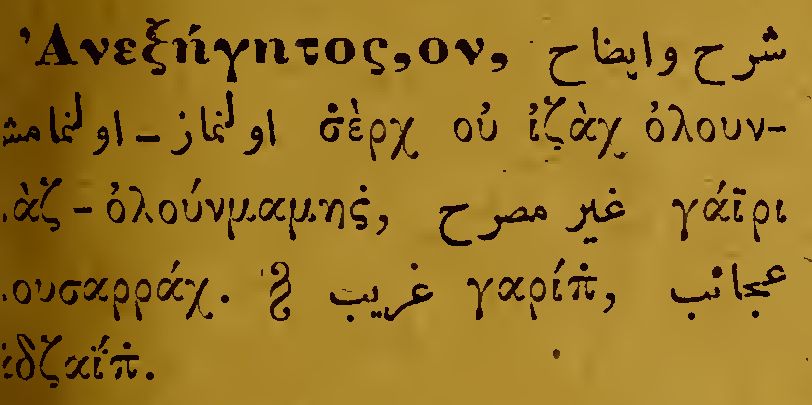 Ἀνεξήγητος,ον, شرح وايضاح
اولنماز ـ اولنمامش σ̇ὲρχ οὐ ἰζὰχ ὀλουν-
ὰζ - ὀλούνμαμησ̇, غير مصرح γάϊρι
ουσαρράχ. غريب γαρίπ̇, عجائب
δζαΐπ̇.